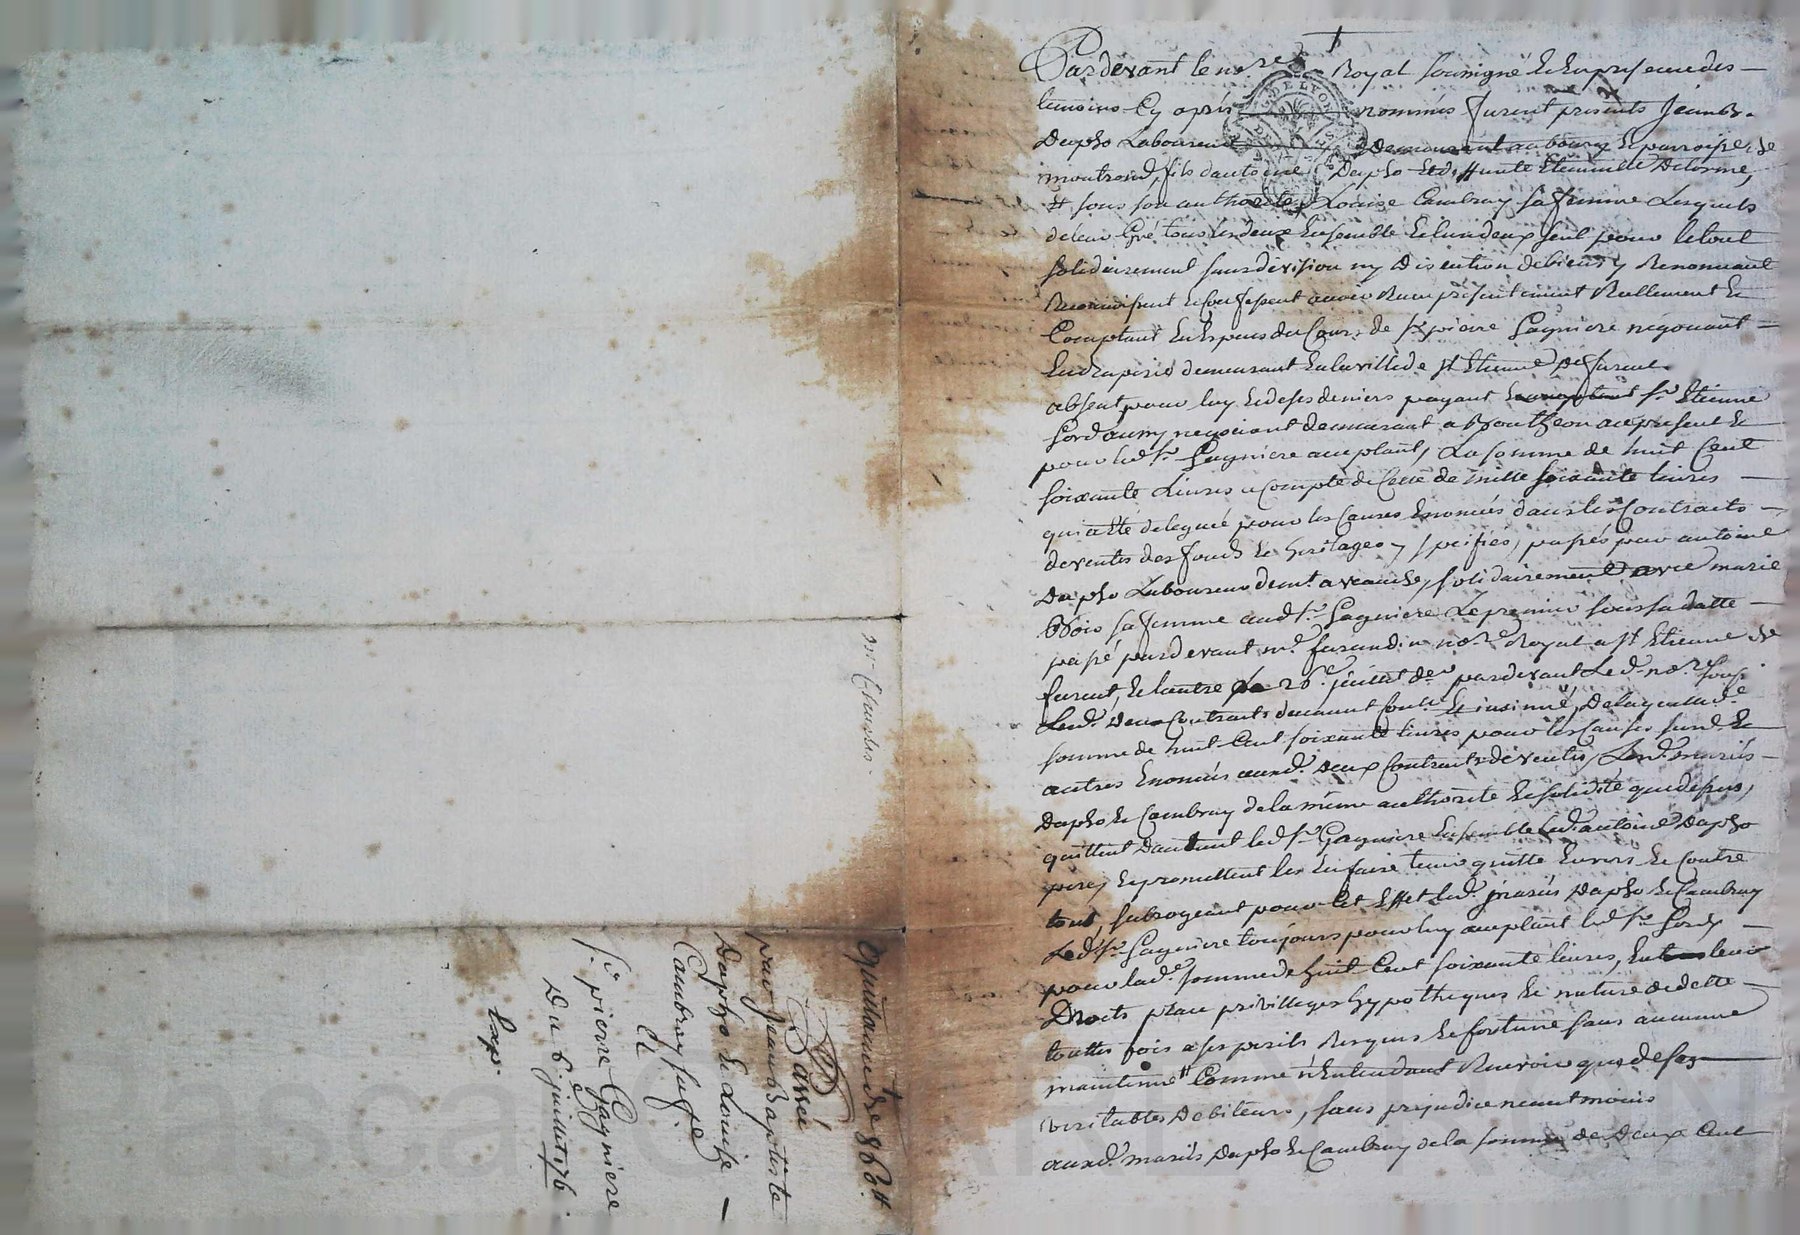 Pardevant le no.re Royal soussigné et en presence des
temoins cy après nommés furent presents Jean B.
Dapho Laboureur demeurant au bourg et parroisse de
montrond, fils d'antoine Dapho et de ffunte Etiennette Delorme,
et sous son authorité Louise Cambray sa femme Lesquels
de leur Gré tous les deux Ensemble et l'un deux seul pour le tout
solidairement sans division ny discution de biens y Renonceant
Reconnoissent et Confessent avoir Reçu presentement Reellement et
Comptant En Especes du Cours de Sr. pierre Gagniere negotiant
En draperie demeurant En la ville de St Etienne de furent
absent, pour luy et de ses deniers payant Sr. Etienne
negotiant demeurant a Boutheon acy present et
pour led. Sr. Gagniere acceptant, La somme de huit Cent
soixante Livres a Compte de Celle de mille soixante livres
qui a Eté deleguée pour les Causes Enoncées dans les Contraits
de ventes des fonds et heritages y speifiés, passés par antoine
Dapho Laboureur demt. a veauche, solidairement avec marie
Bois sa femme aud. Sr. Gagniere Le premier sous sa datte
passé pardevant me. no.re Royal a St Etienne de
furent, et l'autre 26e. juillet der. pardevant Led. no.re sous.
Lesd. deux Contraits duement Contlé. Et insinué, De laquelle de.
somme de huit Cent soixante livres pour les Causes susd. et
autres Enoncées auxd. deux Contraits de ventes, Lesd. mariés
Dapho et Cambray de la même authorité et solidité que dessus,
quittent d'autant led. Sr. Gagniere Ensemble led. antoine Dapho
pere, et promettent les En faire tenir quitte Envers et Contre
tous, subrogeant pour Cet Effet lesd. mariés Dapho et Cambray
Led. Sr. Gagniere toujours pour luy acceptant led. Sr.
pour lad. somme de huit Cent soixante livres, En leur
Droits place privilleges hypotheques et nature de dette
touttes fois a ses perils Risques et fortune sans aucunne
maintenue Comme n'Entendant Recevoir que de ses
veritables Debiteurs, sans prejudice neantmoins
auxd. mariés Dapho et Cambray de la somme de Deux Cent
quittance de 860 tt
Passée
par Jean Baptiste
Dapho et Louise
Cambray sa fe.
a
Sr. pierre Gagniere
Du 6 juillet 176
Exp.